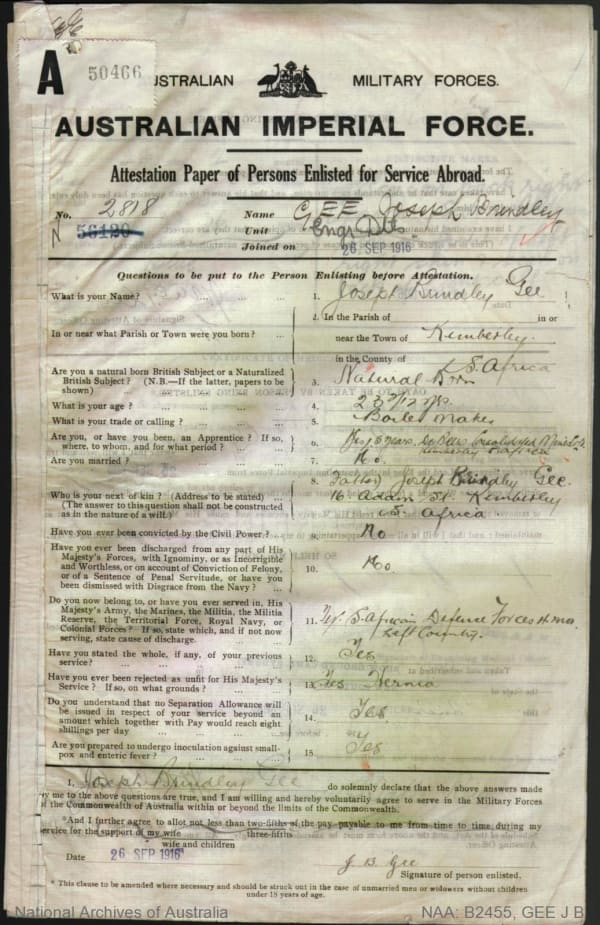 A
50466
AUSTRALIAN MILITARY FORCES.
AUSTRALIAN IMPERIAL FORCE.
Attestation Paper of Persons Enlisted for Service Abroad.
No. 2818 Name GEE Joseph Brindley
56120 Unit Engr Dtls
Joined on 26 SEP 1916
Questions to be put to the Person Enlisting before Attestation.
What is your Name? ... ... ... 1. Joseph Brindley Gee
2. In the Parish of in or
In or near what Parish or Town were you born? ... near the Town of Kimberley
in the County of S. Africa
Are you a natural born British Subject or a Naturalized
British Subject? (N.B.—If the latter, papers to be
shown) ... ... ... 3. Natural Born
What is your age? ... ... ... 4. 23 7/12 yrs.
What is your trade or calling? ... ... 5. Boiler Maker
Are you, or have you been, an Apprentice? If so,
where, to whom, and for what period? ... 6. Yes 5 years. De Beers Consolidated Mines
Kimberley S. Africa
Are you married? ... ... ... 7. No.
8. Father Joseph Brindley Gee.
Who is your next of kin? (Address to be stated) ... 16 Adam St. Kimberley
(The answer to this question shall not be construed
as in the nature of a will.) S. Africa
Have you ever been convicted by the Civil Power? ... 9. No
Have you ever been discharged from any part of His
Majesty's Forces, with Ignominy, or as Incorrigible
and Worthless, or on account of Conviction of Felony,
or of a Sentence of Penal Servitude, or have you
been dismissed with Disgrace from the Navy? ... 10. No.
Do you now belong to, or have you ever served in, His
Majesty's Army, the Marines, the Militia, the Militia
Reserve, the Territorial Force, Royal Navy, or
Colonial Forces? If so, state which, and if not now
serving, state cause of discharge. 11. Yes. S. African Defence Forces
Left Country.
Have you stated the whole, if any, of your previous
service? ... ... ... 12. Yes
Have you ever been rejected as unfit for His Majesty's
Service? If so, on what grounds? ... 13. Yes Hernia
Do you understand that no Separation Allowance will
be issued in respect of your service beyond an
amount which together with Pay would reach eight
shillings per day ... ... 14. Yes
Are you prepared to undergo inoculation against small-
pox and enteric fever? ... ... 15. Yes
I, Joseph Brindley Gee do solemnly declare that the above answers made
by me to the above questions are true, and I am willing and hereby voluntarily agree to serve in the Military Forces
of the Commonwealth of Australia within or beyond the limits of the Commonwealth.
*And I further agree to allot not less than two-fifths of the pay payable to me from time to time during my
three-fifths
service for the support of my wife
wife and children
Date 26 SEP 1916
J. B. Gee
Signature of person enlisted.
* This clause to be amended where necessary and should be struck out in the case of unmarried men or widowers without children
under 18 years of age.
National Archives of Australia NAA: B2455, GEE J B